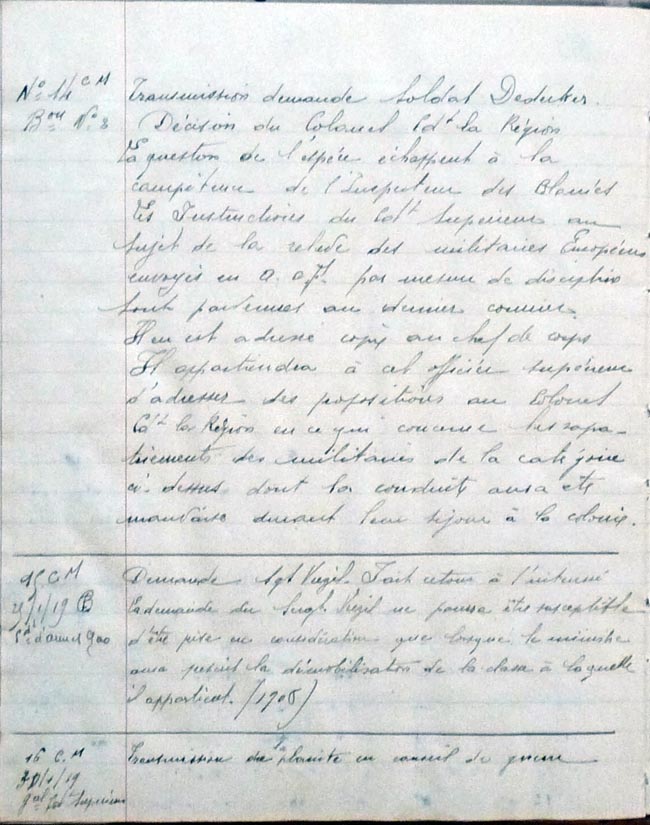 N° 14 C M
Bon N° 8
Transmission demande Soldat Dedecker.
Décision du Colonel Cdt la Région
La question de l'espèce échappent à la
compétence de l'Inspecteur des
Les Instructions du Cdt Supérieur au
sujet de la relève des militaires Européens
envoyés en a. o. f. par mesure de discipline
sont parvenues au dernier courrier.
Il en est adressé copie au chef de corps
Il appartiendra à cet officier supérieur
d'adresser des propositions au Colonel
Cdt la Région en ce qui concerne les rapa-
triements des militaires de la catégorie
ci-dessus dont la conduite aura été
mauvaise durant leur séjour à la colonie.
15 C M
/1/19
Gao
Demande Sgt Vuzil. Fait retour à l'intéressé
La demande du Sergt Vuzil ne pourra être susceptible
d'être prise en considération que lorsque le ministre
aura prescrit la démobilisation de la classe à laquelle
il appartient. (1908)
16 C. M
30/1/19
Gal Cdt Supérieur
Transmission de la plainte en conseil de guerre